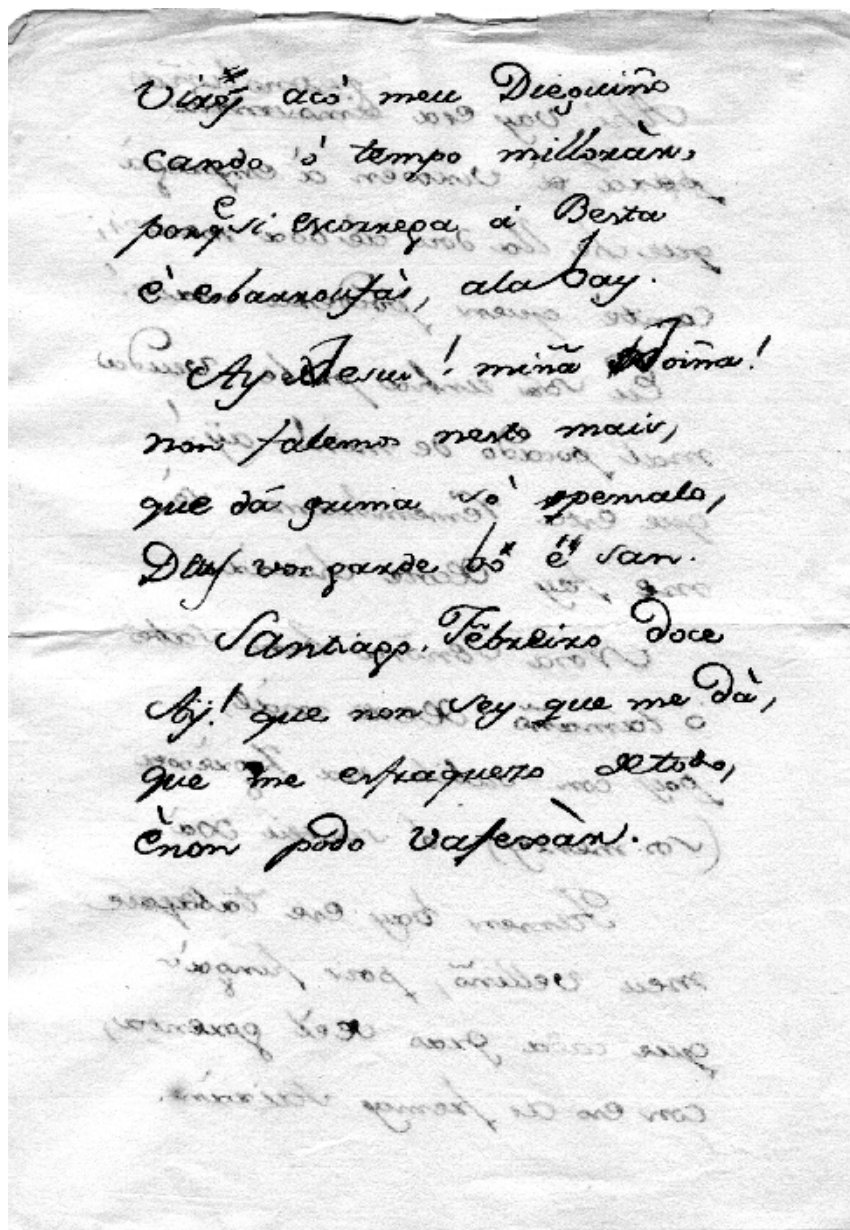 Virey acó meu Dieguiño
cando ó tempo milloràr,
porqe si escorrega á Besta
è esbarroufàs, ala bay.
Ay Jesus! miña Joiña!
non falemos nesto mais,
que dá grima só pensalo,
Deus vos garde bó é san.
Santiago, Febreiro doce
Ay! que non sey que me dà,
que me esfraquezo detodo,
ènon podo vafexàr.